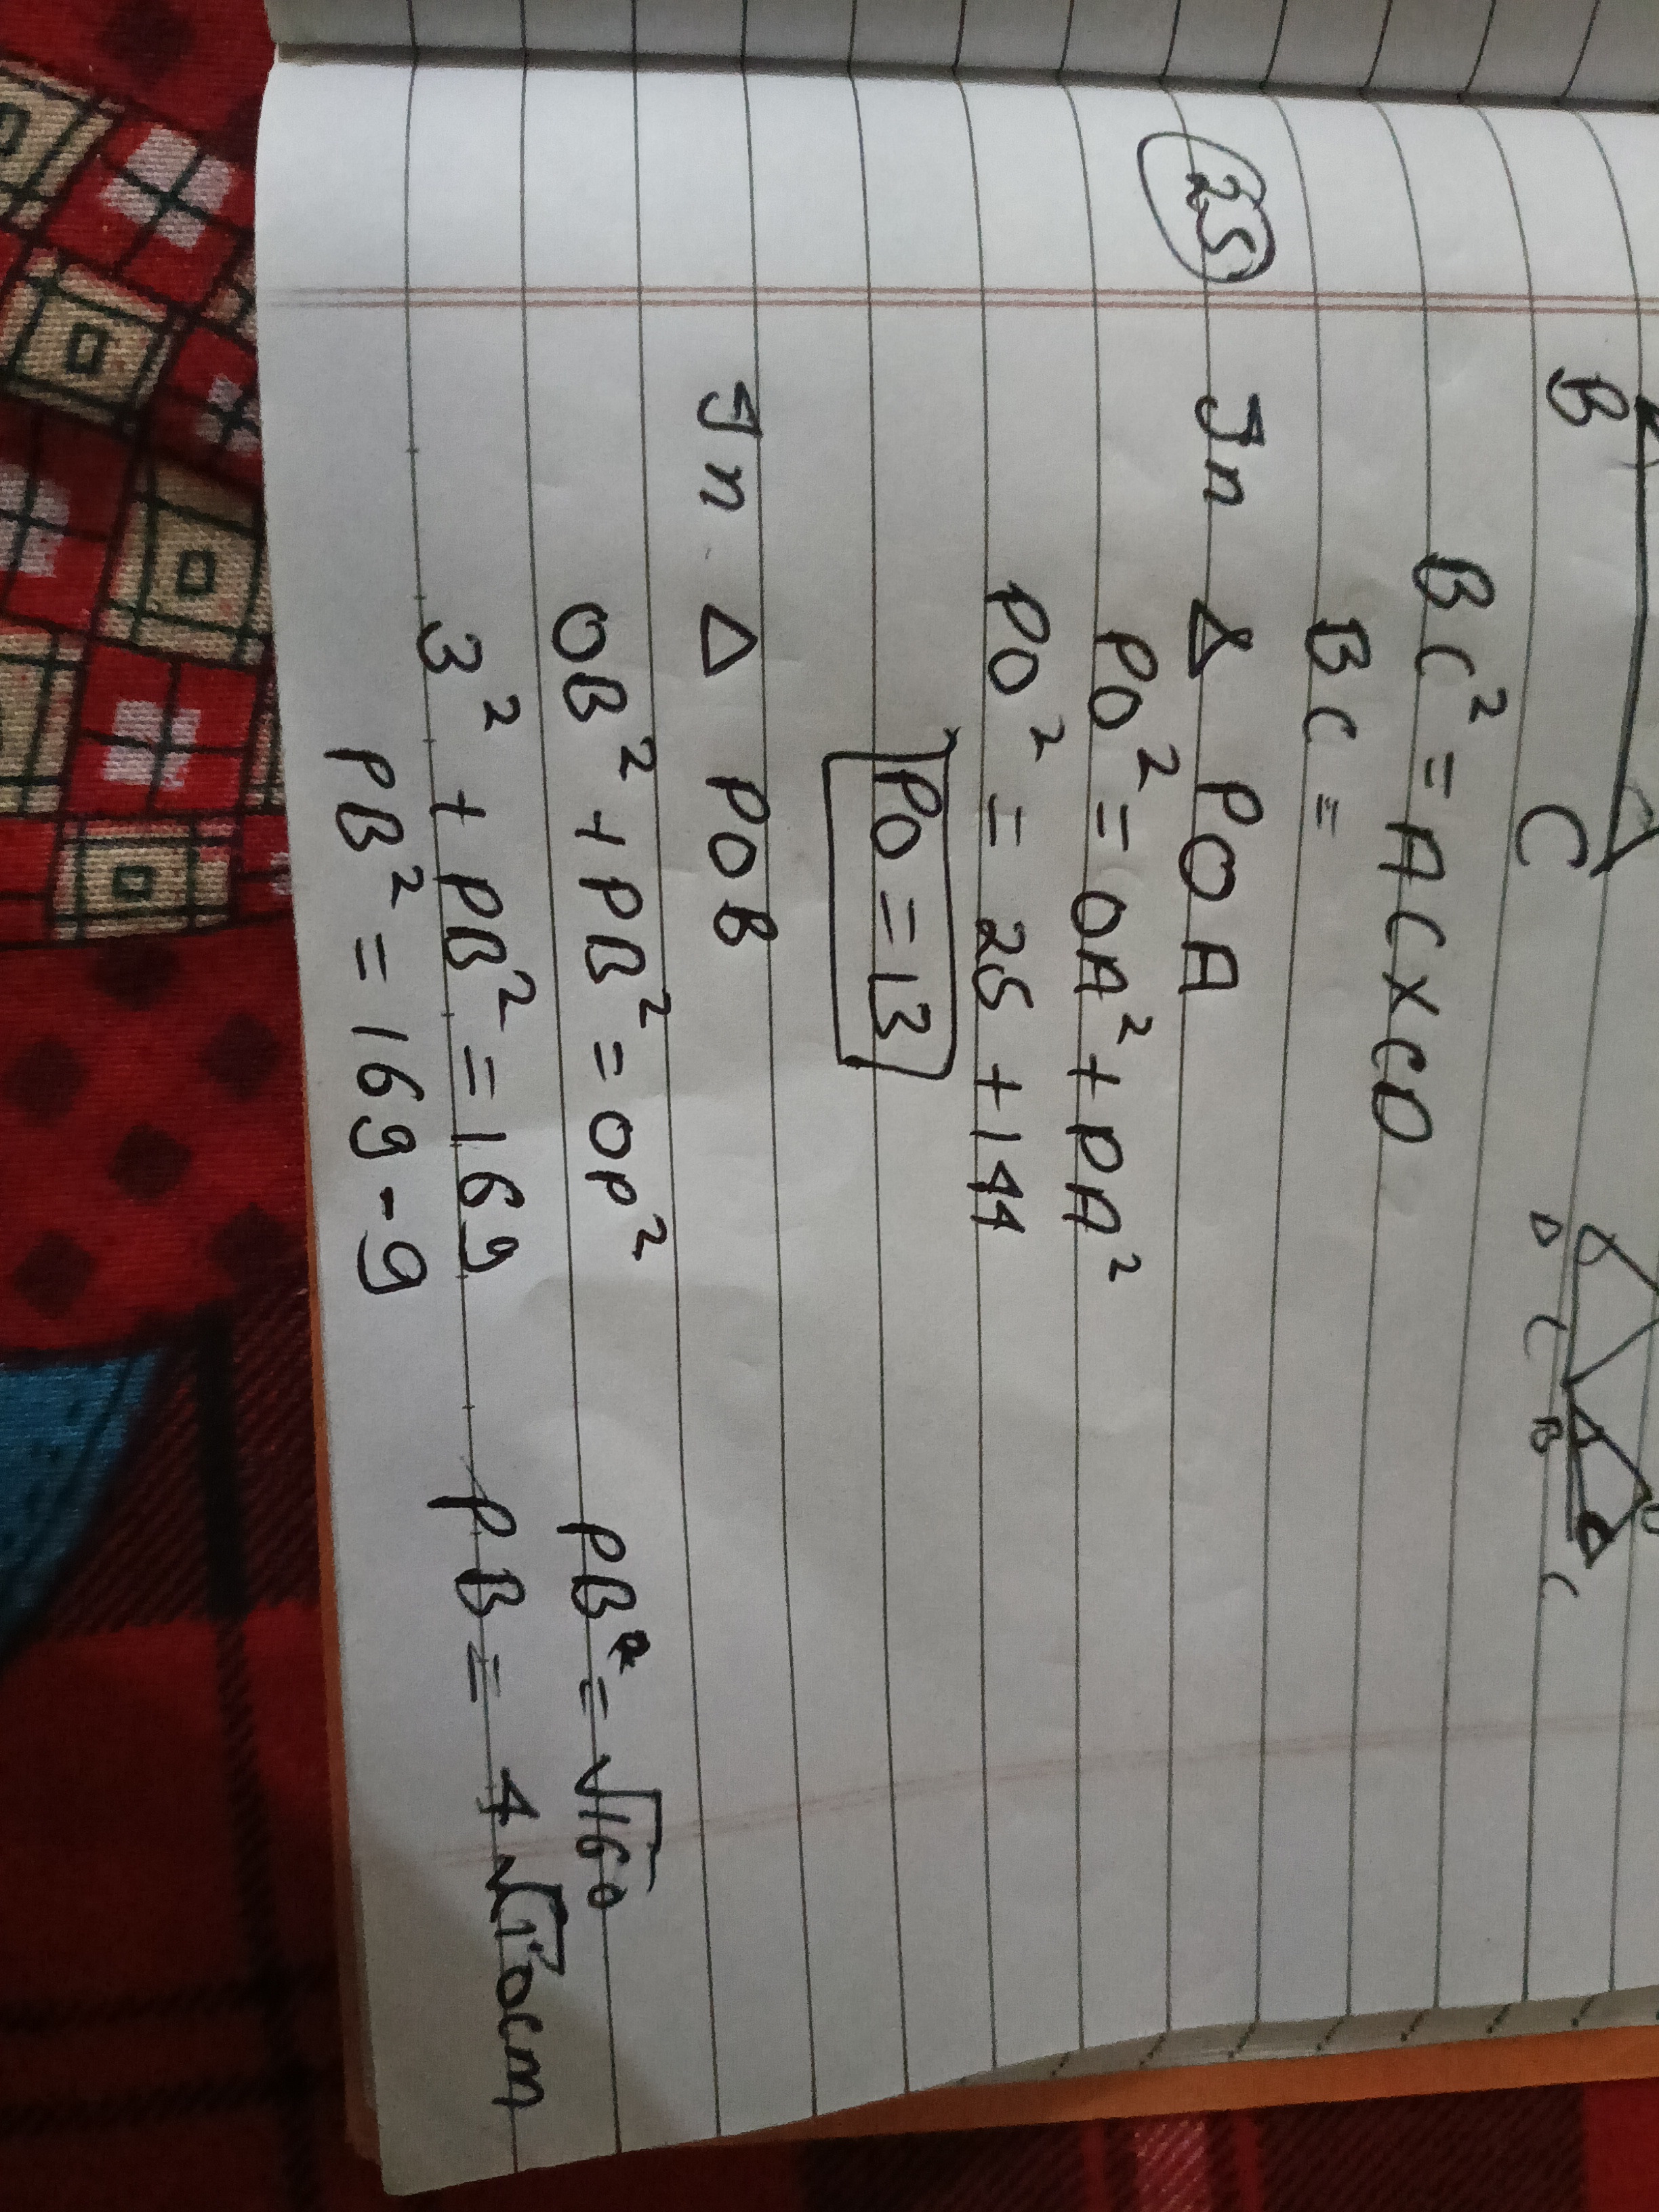 B C
D C B C
BC² = AC × CD
BC =
25 In Δ POA
PO² = OA² + PA²
PO² = 25 + 144
PO = 13
In Δ POB
OB² + PB² = OP²
3² + PB² = 169
PB² = 169 - 9
PB = √160
PB = 4√10cm